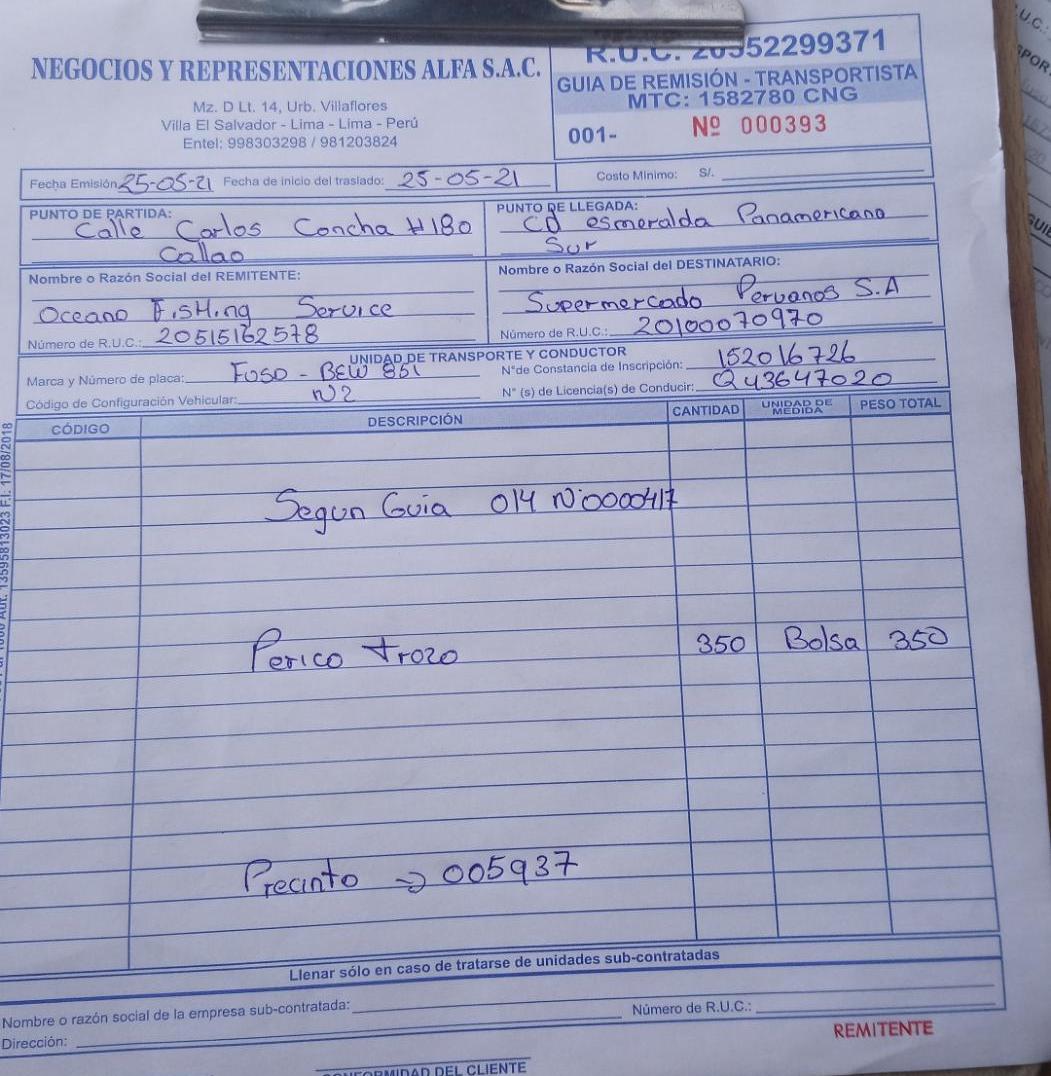 R.U.C. 20552299371
NEGOCIOS Y REPRESENTACIONES ALFA S.A.C.
GUIA DE REMISIÓN - TRANSPORTISTA
MTC: 1582780 CNG
001- Nº 000393
Mz. D Lt. 14, Urb. Villaflores
Villa El Salvador - Lima - Lima - Perú
Entel: 998303298 / 981203824
Fecha Emisión: 25-05-21 Fecha de inicio del traslado: 25-05-21 Costo Minimo: S/.
PUNTO DE PARTIDA:
Calle Carlos Concha #180
Callao
PUNTO DE LLEGADA:
CD esmeralda Panamericano
Sur
Nombre o Razón Social del REMITENTE:
Oceano Fishing Service
Número de R.U.C.: 20515162578
Nombre o Razón Social del DESTINATARIO:
Supermercado Peruanos S.A
Número de R.U.C.: 20100070970
UNIDAD DE TRANSPORTE Y CONDUCTOR
Marca y Número de placa: FUSO - BEW 851
Nºde Constancia de Inscripción: 152016726
Código de Configuración Vehicular: N2
Nº (s) de Licencia(s) de Conducir: Q43647020
CÓDIGO DESCRIPCIÓN CANTIDAD UNIDAD DE MEDIDA PESO TOTAL
Segun Guia 014 Nº0000417
Perico trozo 350 Bolsa 350
Precinto → 005937
Llenar sólo en caso de tratarse de unidades sub-contratadas
Nombre o razón social de la empresa sub-contratada: Número de R.U.C.:
Dirección:
REMITENTE
CONFORMIDAD DEL CLIENTE
Aut. 13595813023 F.I. 17/08/2018